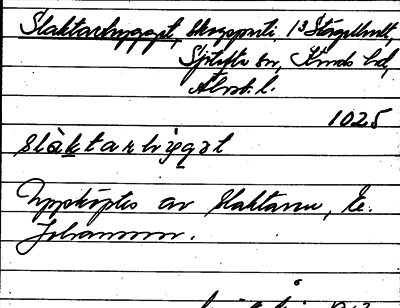 Slaktarhygget, skogsparti, 13
Sjötofta sn, Kinds hd,
Älvsb. l.
1025
slàktarhiget
Uppköptes av slaktaren, E.
Johansson.